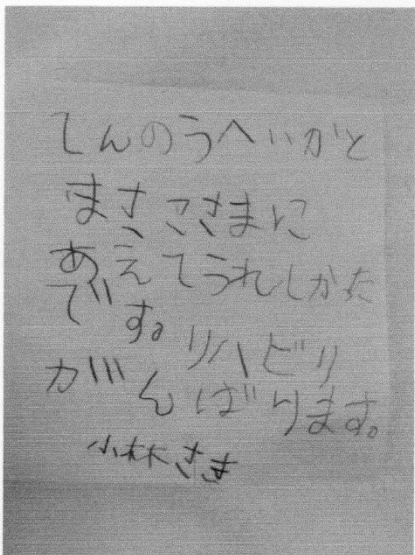 てんのうへいかと
まさこさまに
あえてうれしかた
です。リハビリ
がんばります。
小林さき